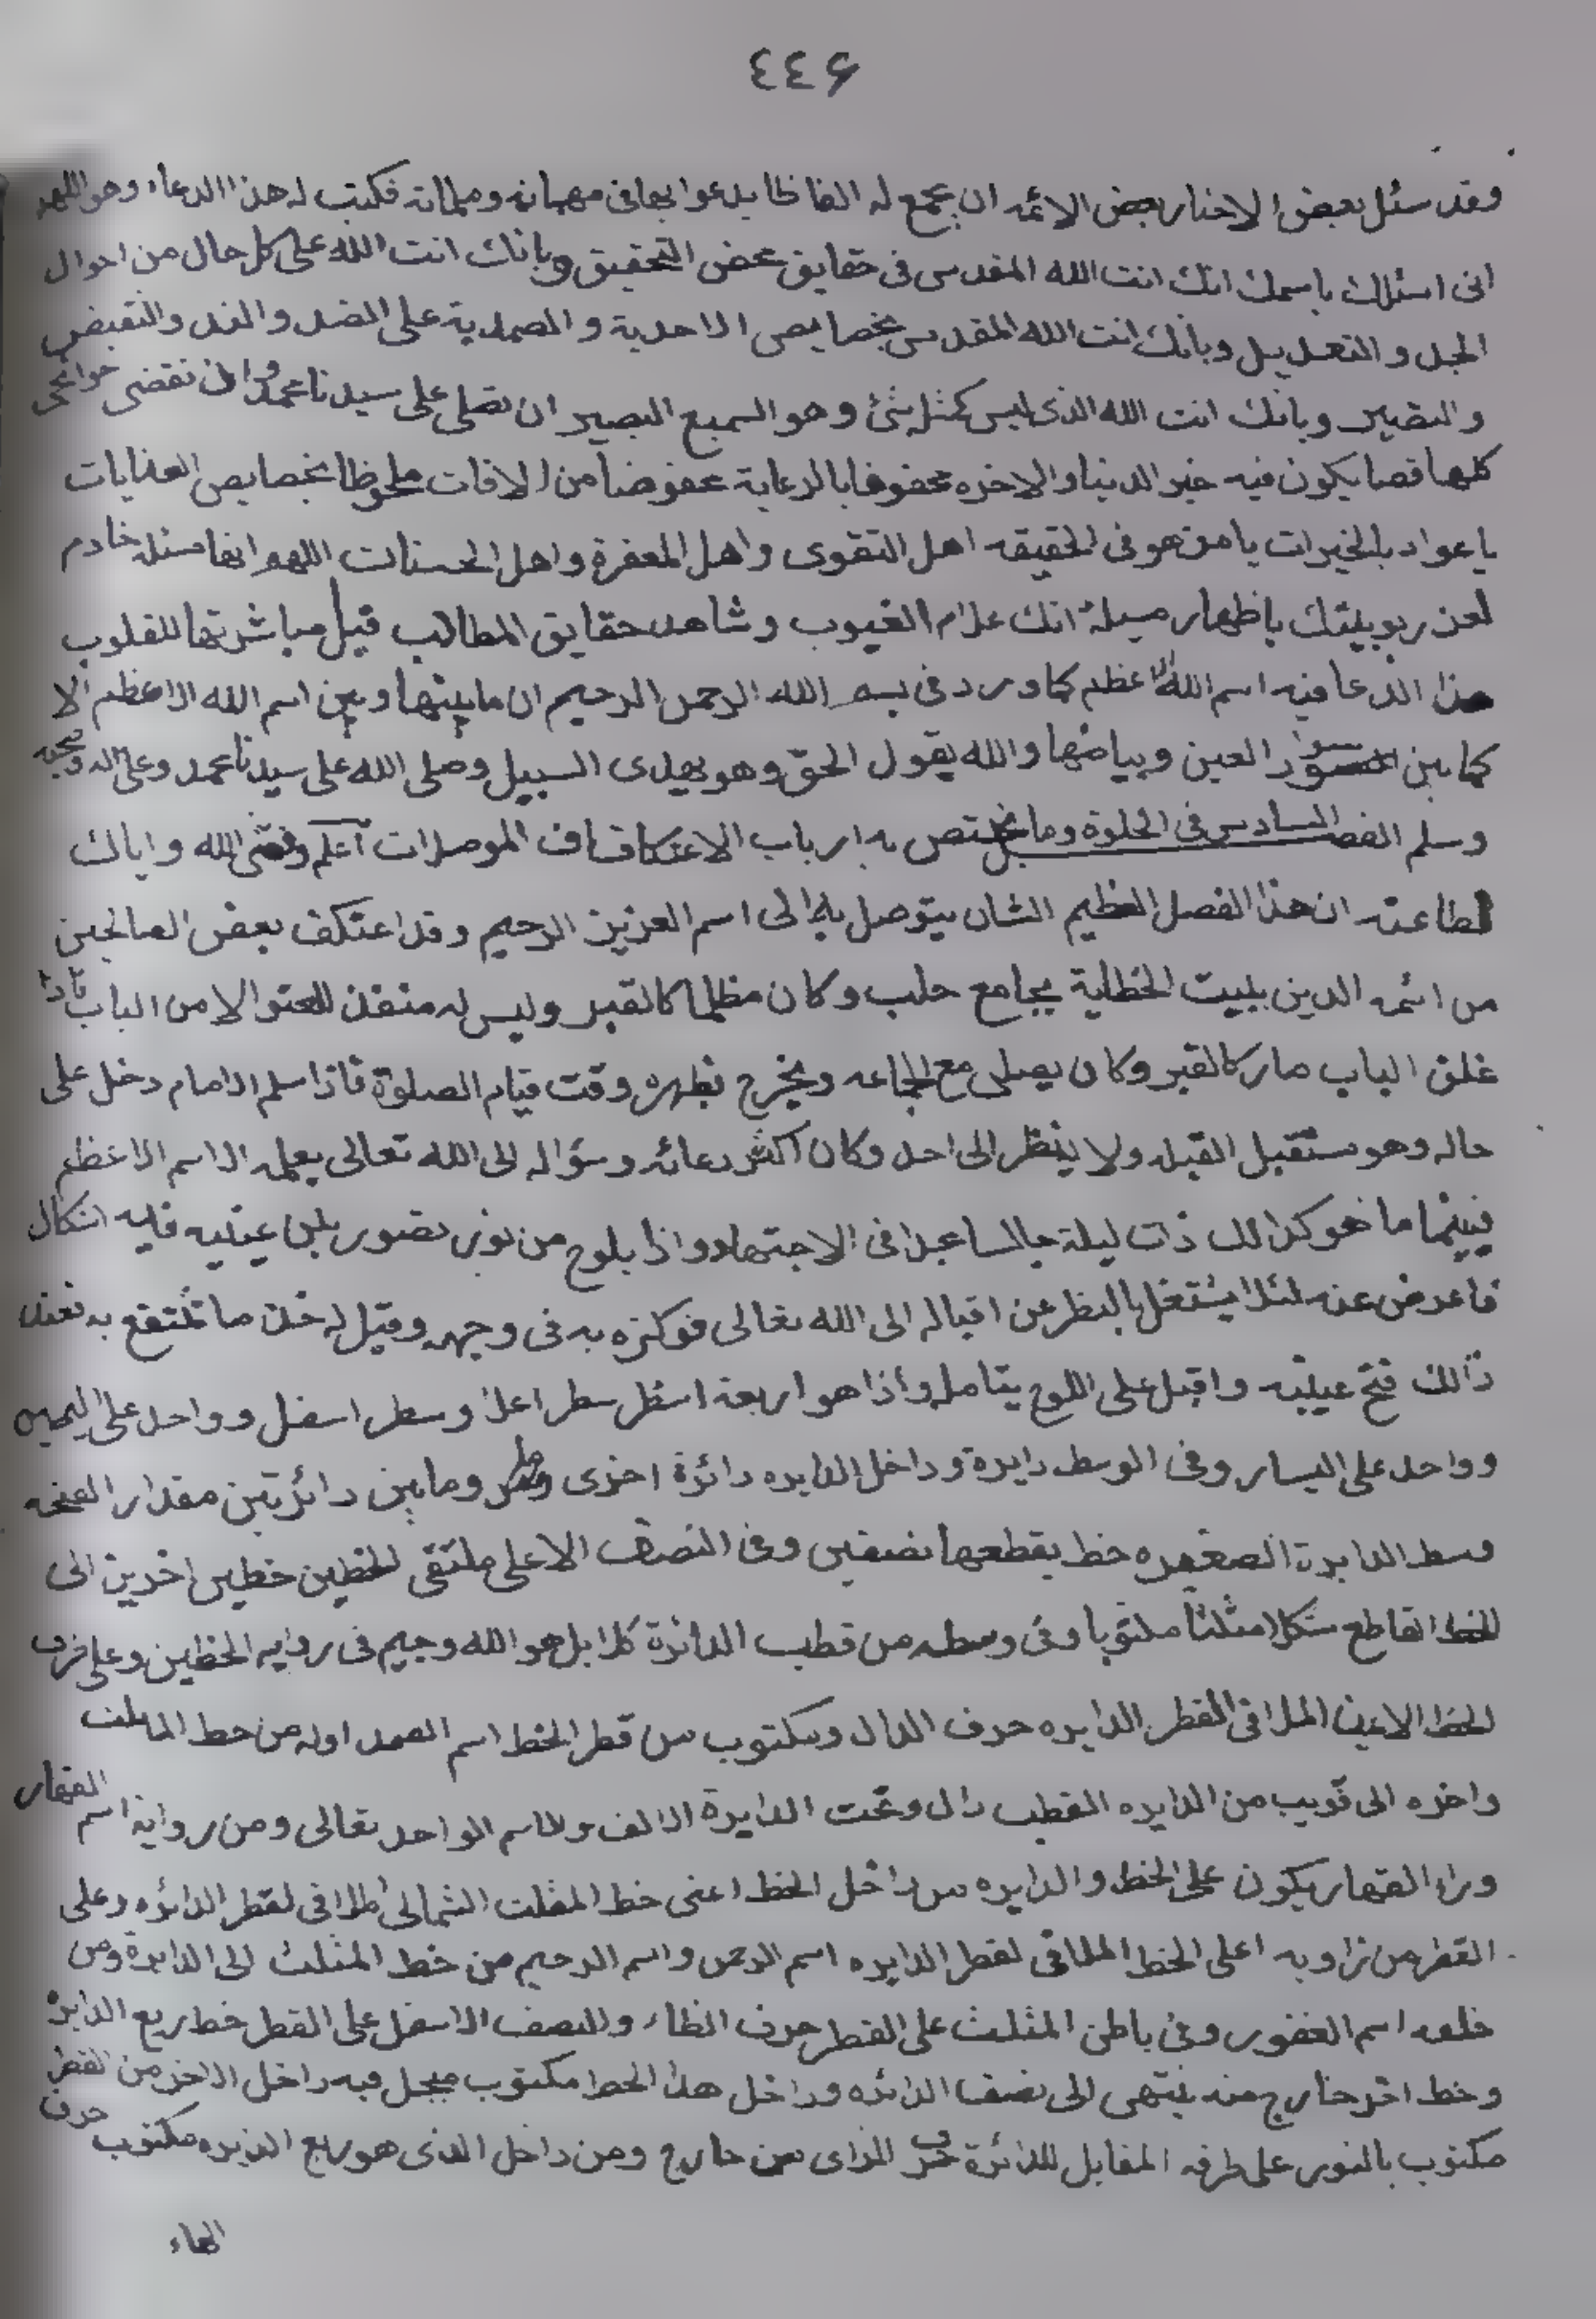 ٤٤۶
وقد سئل بعض الاخيار بعض الائمه ان يجمع له الفاظا يدعوا بها فى مهماته وملماته فكتب له هذا الدعاء وهو اللهم
انى اسئلك باسمك انك انت الله المقدس فى حقايق محض التحقيق وبانك انت الله على كل حال من احوال
الجد والتعديل وبانك انت الله المقدس بخصايص الاحدية والصمدية على الضد والند والنقيض
والنضير وبانك انت الله الذى ليس كمثله شئ وهو السميع البصير ان تصلى على سيدنا محمد وان تقضى حوائجى
كلها قضا يكون فيه خير الدنيا والاخره محفوفا بالرعاية محفوضا من الافات ملحوظا بخصايص العنايات
يا عواد بالخيرات يا من هو فى الحقيقه اهل التقوى واهل المغفرة واهل الحسنات اللهم انها مسئلة خادم
لعز ربوبيتك باظهار مسلة انك علام الغيوب وشاهد حقايق المطالب قبل مباشرتها للقلوب
هذا الدعا فيه اسم الله الاعظم كما ورد فى بسم الله الرحمن الرحيم ان ما بينها وبين اسم الله الاعظم الا
كما بين سواد العين وبياضها والله يقول الحق وهو يهدى السبيل وصلى الله على سيدنا محمد وعلى اله وصحبه
وسلم الفصل السادس فى الخلوة وما يختص به ارباب الاعتكاف الموصلات اعلم وفقنى الله واياك
لطاعته ان هذا الفصل العظيم الشان يتوصل به الى اسم العزيز الرحيم وقد اعتكف بعض الصالحين
من ائمه الدين ببيت الخطابة بجامع حلب وكان مظلما كالقبر وليس له منفذ للضو الا من الباب فاذا
غلق الباب صار كالقبر وكان يصلى مع الجماعه ويخرج بظهره وقت قيام الصلوة فاذا سلم الامام دخل على
حاله وهو مستقبل القبله ولا ينظر الى احد وكان اكثر دعائه وسؤاله الى الله تعالى يعلمه الاسم الاعظم
فبينما هو كذالك ذات ليلة جالسا مجدا فى الاجتهاد واذا بلوح من نور تصور بين عينيه فيه اشكال
فاعرض عنه لئلا يشتغل بالنظر عن اقباله الى الله تعالى فوكزه به فى وجهه وقيل له خذ ما تنتفع به فعند
ذالك فتح عينيه واقبل على اللوح يتامله واذا هو اربعة اسطر سطر اعلا وسطر اسفل وواحد على اليمين
وواحد على اليسار وفى الوسط دايرة وداخل الدايره دائرة اخرى وما بين دائرتين مقدار الصحه
وسط الدايرة الصغيره خط يقطعها نصفين وفى النصف الاعلى ملتقى للخطين خطين اخرين الى
الخط القاطع شكلا مثلثا مكتوبا وفى وسطه من قطب الدائرة كلا بل هو الله وجيم فى زوايه الخطين وعلى حرف
الخط الايمن الملاقى لقطر الدايره حرف الدال ومكتوب من قطر الخط اسم الصمد اوله من خط المثلث
واخره الى قريب من الدايره القطب دال وتحت الدايرة الالف ولاسم الواحد تعالى ومن رواية اسم القهار
وراء القهار يكون على الخط والدايره من داخل الخط اعنى خط المثلث الشمالى الملاقى لقطر الدائره وعلى
القطر من زاويه اعلى الخط الملاقى لقطر الدايره اسم الرحمن واسم الرحيم من خط المثلث الى الدايرة ومن
خلفه اسم الغفور وفى باطن المثلث على القطر حرف الظاء وللنصف الاسفل على القطر خط ربع الدايرة
وخط اخر خارج منه ينتهى الى نصف الدائره وداخل هذا الخط مكتوب مبجل فيه داخل الاخر من القطر
مكتوب بالنور على طرفه المقابل للدائرة حرف الزاى من خارج ومن داخل الذى هو ربع الدايره مكتوب حرف
الهاء